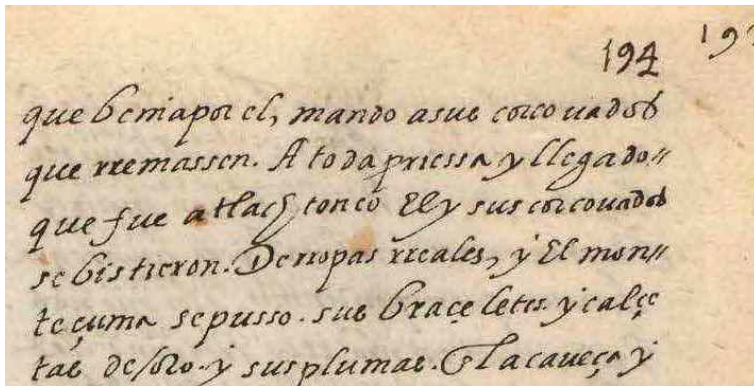 194 19
que beniapor el, mando asus corcouados
que rremassen. A toda priessa y llegado"
que fue a tlachtonco El y sus corcouados
se bistieron. De rropas rreales, y El mon"
teçuma sepusso. sus braçeletes y calçe
tas de oro. y susplumas. A lacaueça y